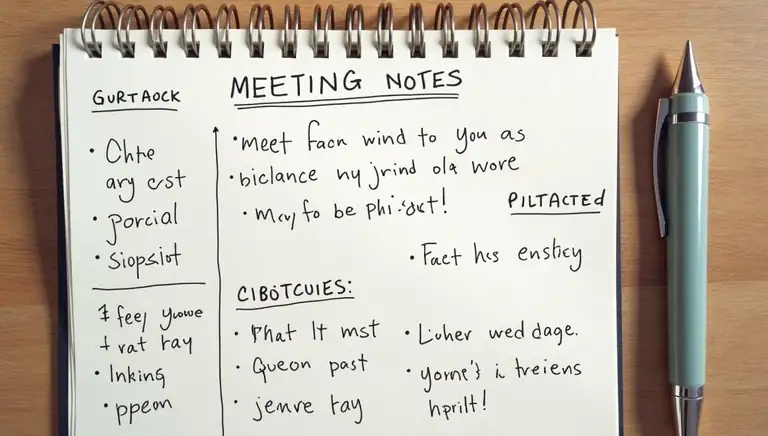 GURTAOCK
• Chte
ary crst
• porcial
• Siopsist
‡ feey yowe
+ vat tay
• Inking
• ppeon
MEETING NOTES
• meet facn wind to you as
• biclance ny jrind ola wore
• may fo be phi-sut!
PILTACTED
• Fact hcs enslicy
CIBOTCUIES:
• Phat It mst
• Queon past
• jenre tay
• Luher wed dage.
• yorne's i treiens
hprilt!